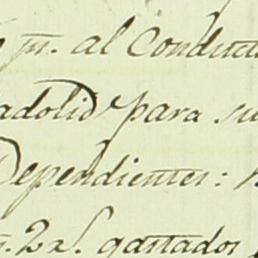 al Conduct
adolid para su
Dependientes:
2 rs. gastados